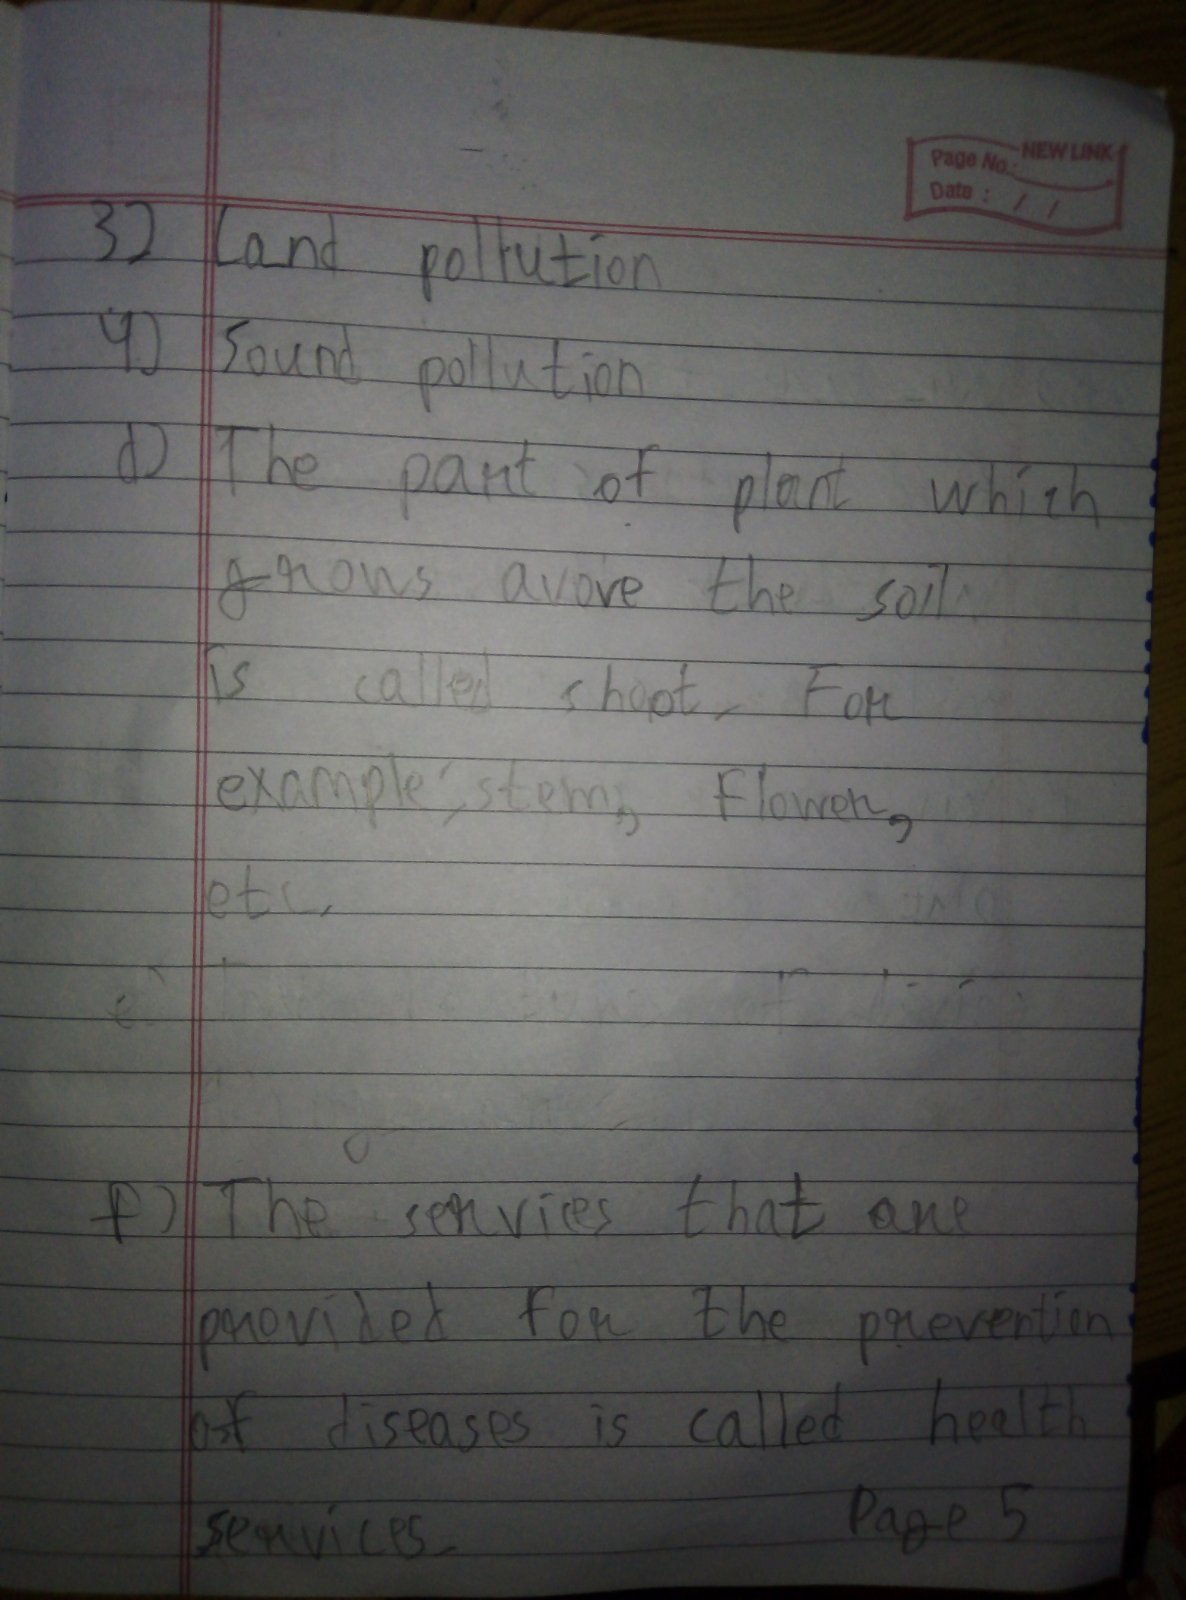 NEW LINK
Page No.:
Date : / /
3) Land pollution
4) Sound pollution
d) The part of plant which
grows avove the soil
is called shoot. For
example, stem, Flower,
etc.
e)
f) The services that are
provided for the prevention
of diseases is called health
services.
Page 5